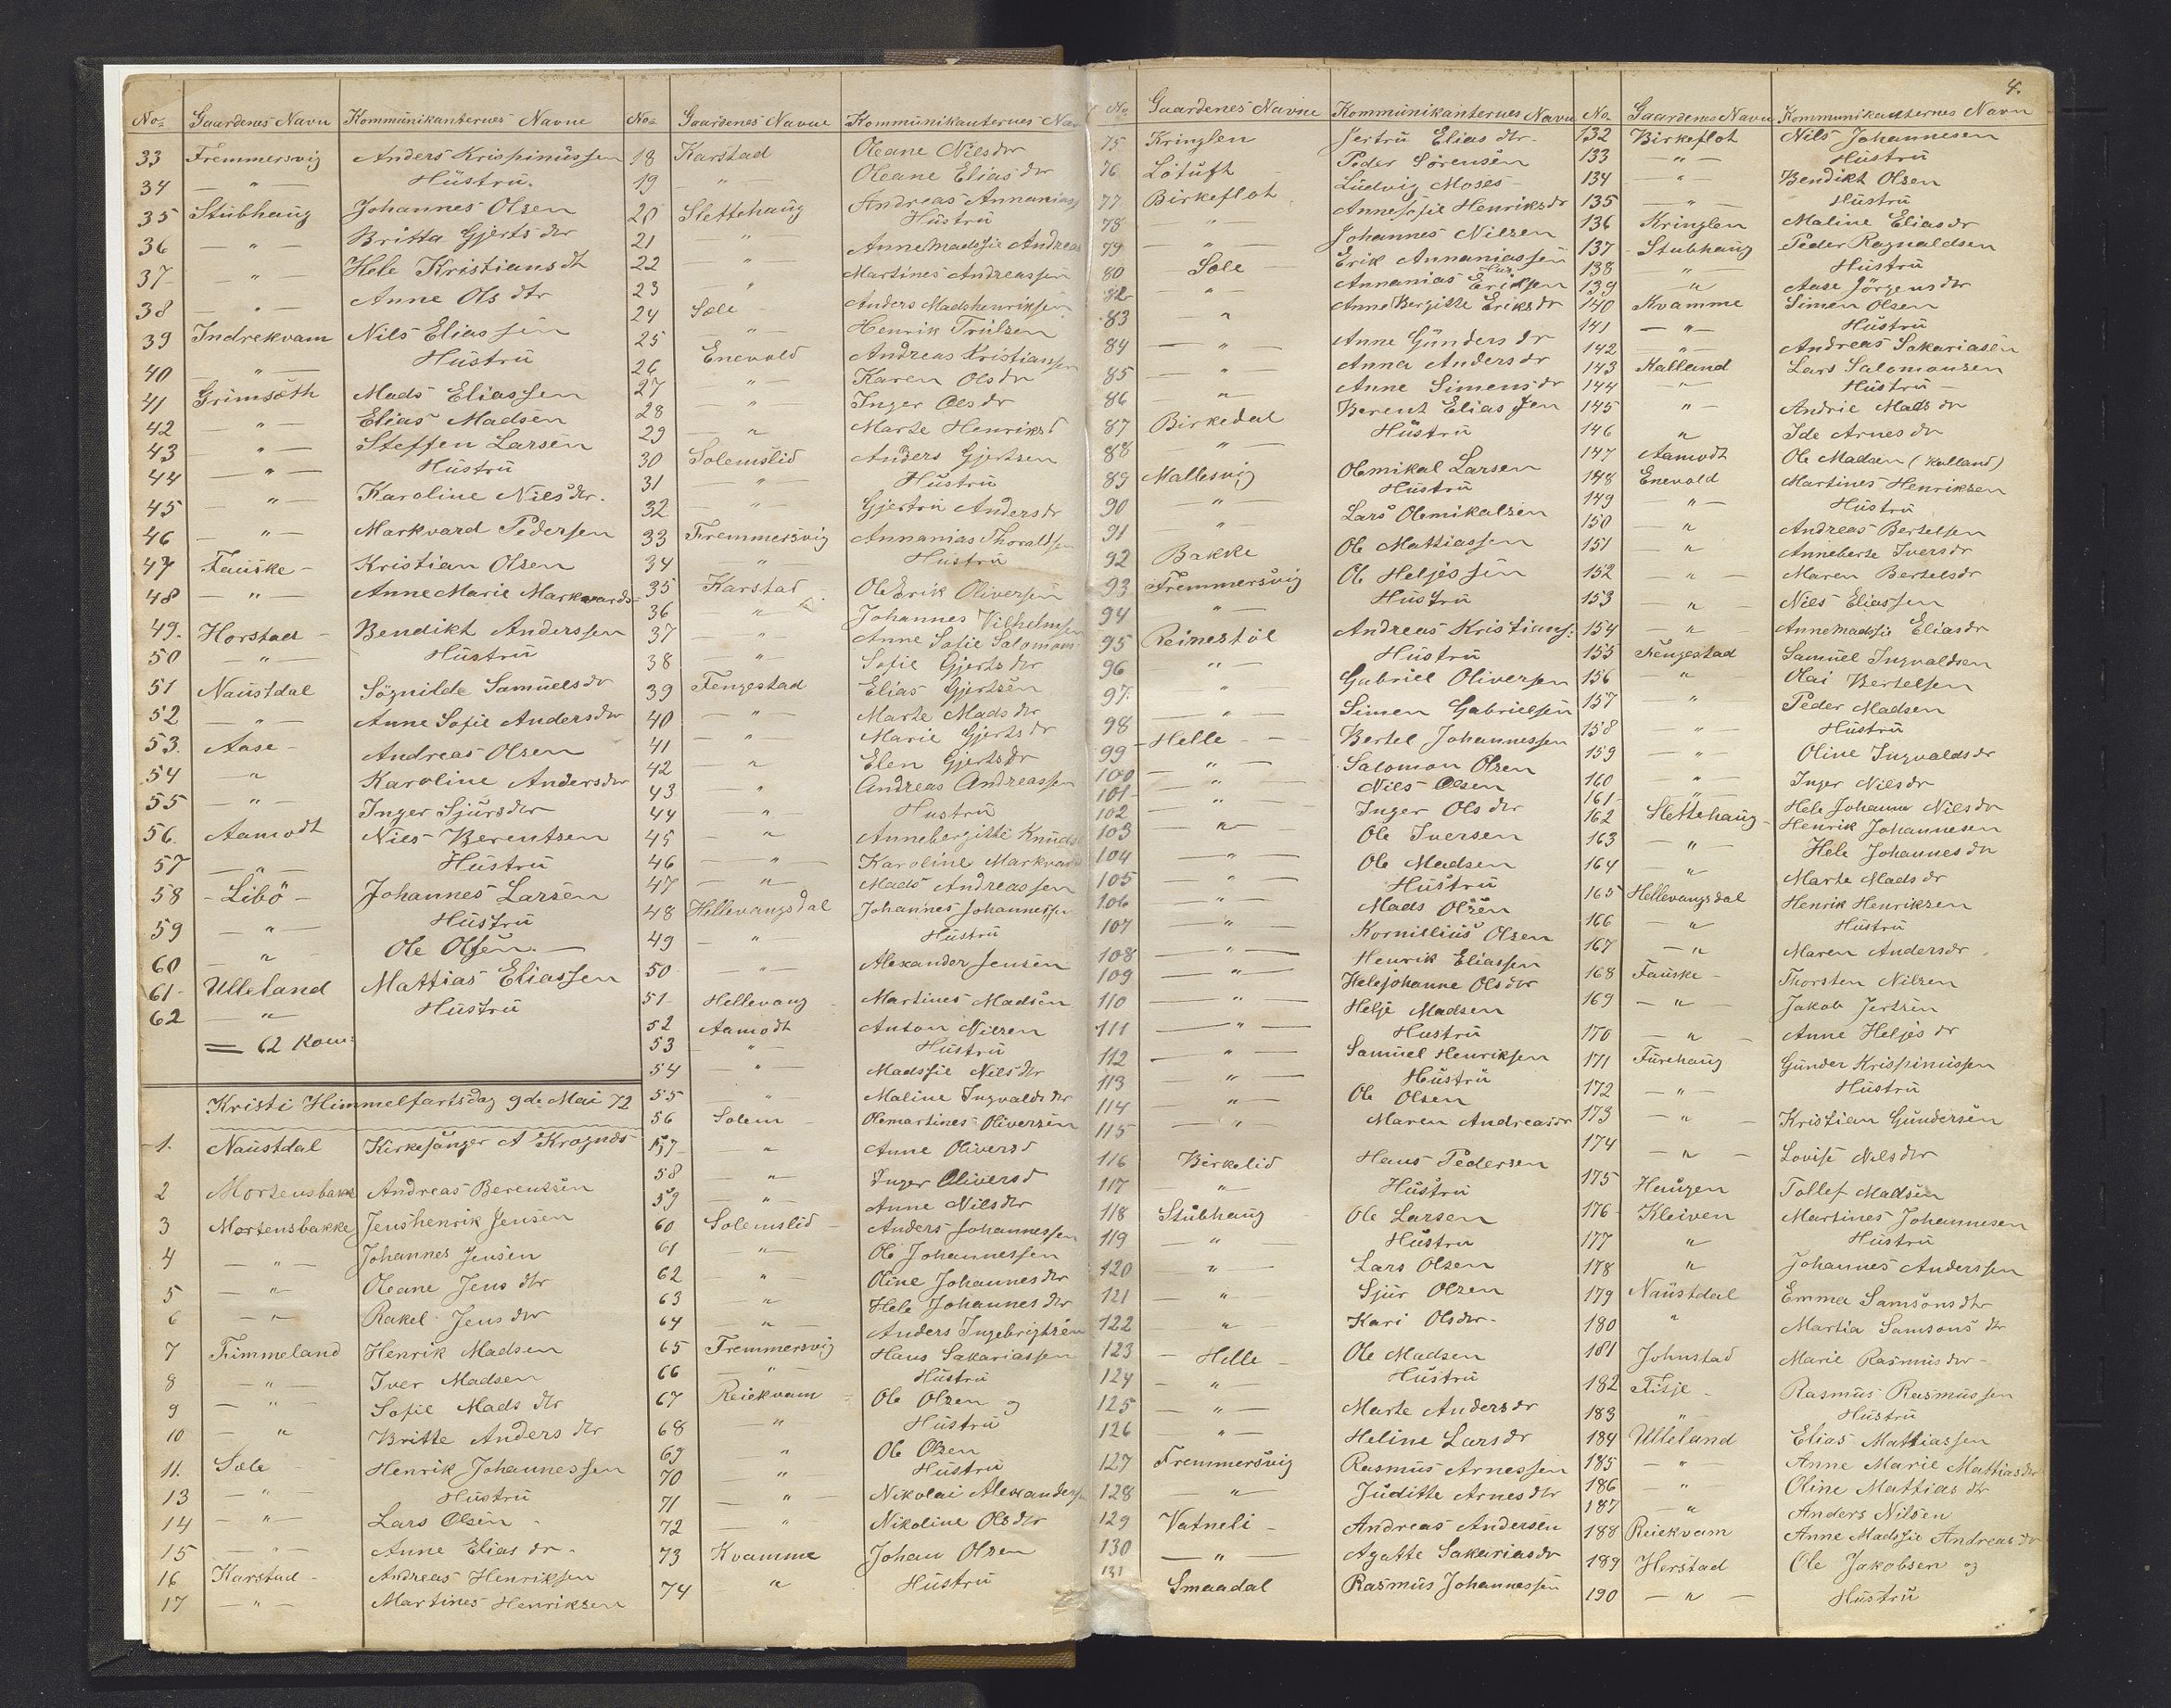 No Gaardenes Navn Kommunikanternes Navne
33 Fremmersvig Anders Krispinussen
34 — " — Hustru.
35 Stubhaug Johannes Olsen
36 — " — Britta Gjertsdtr
37 — " — Hele Kristiansdtr
38 — " — Anne Olsdtr
39 Indrekvam Nils Eliassen
40 — " — Hustru
41 Grimsæth Mads Eliassen
42 — " — Elias Madsen
43 — " — Steffen Larsen
44 — " — Hustru
45 — " — Karoline Nilsdtr.
46 — " — Markvard Pedersen
47 Fauske - Kristian Olsen
48 — " — Anne Marie Markvards
49. Horstad - Bendikt Anderssen
50 — " — Hustru
51 Naustdal Sögnilde Samuelsdr
52 — " — Anne Sofie Andersdtr
53. Aase - Andreas Olsen
54 — " Karoline Andersdtr
55 — " — Inger Sjursdtr
56. Aamodt Nils Berentsen
57 — " — Hustru
58 - Libö - Johannes Larsen
59 — " — Hustru
60 — " - Ole Olsen. —
61 - Ulleland Mattias Eliassen
62 — " — Hustru
= 62 Kom:
Kristi Himmelfartsdag 9de Mai 72
1. Naustdal Kirkesanger A Krognæs
2 Mortensbakk Andreas Berentsen
3 Mortensbakke Jenshenrik Jensen
4 — " — Johannes Jensen
5 — " — Oleane Jensdtr
6 — " — Rakel Jensdtr
7 Timmeland Henrik Madsen
8 — " — Iver Madsen
9 — " — Sofie Madsdtr
10 — " Britte Andersdtr
11. Sæle Henrik Johannessen
13 — " — Hustru
14 — " — Lars Olsen -
15 — " — Anne Eliasdr.
16 Karstad - Andreas Henriksen
17 — " — Martines Henriksen
No Gaardenes Navne Kommunikanternes Nav
18 Karstad Oleane Nilsdtr
19 — " — Oleane Eliasdtr
20 Slettehaug Andreas Annanias
21 " Hustru
22 — " — Annemadssie Andreas
23 " Martines Andreassen
24 Sæle Anders Madshenriksen
25 " — Henrik Trulsen
26 Enevold Andreas Kristiansen
27 " — Karen Olsdr
28 " — Inger Olsdr
29 — " — Marte Henriksd
30 Solemslid Anders Gjertsen
31 — " — Hustru
32 — " — Gjertru Andersdr
33 Fremmersvig Annanias Thoralfsen
34 — " Hustru
35 Karstad OleErik Oliversen
36 " — Johannes Vilhelmsen
37 — " Anne Sofie Salomons
38 — " — Sofie Gjertsdtr
39 Fengestad Elias Gjertsen
40 — " — Marte Madsdtr
41 — " — Marie Gjertsdr
42 — " Elen Gjertsdr
43 — " Andreas Andreassen
44 " Hustru
45 — " Annebergitte Knuds
46 — " — Karoline Markvard
47 — " — Mads Andreassen
48 Hellevangsdal Johannes Johannessen
49 — " Hustru
50 — " — Alexander Jensen
51 Hellevang - Martines Madsen
52 Aamodt Anton Nilsen
53 — " — Hustru
54 — " — Madssie Nilsdtr
55 " Maline Ingvaldsdtr
56 Solem - Olemartines Oliversen
57 — " Anne Oliversd
58 — " — Inger Oliversd
59 — " — Anne Nilsdtr
60 Solemslid - Anders Johannessen
61 — " — Ole Johannessen
62 — " — Oline Johannesdtr
63 — " Hele Johannesdtr
64 — " — Anders Ingebrigtsen
65 Fremmersvig Hans Sakariassen
66 — " — Hustru
67 Reiekvam - Ole Olsen og
68 — " Hustru
69 " Ole Olsen
70 " Hustru
71 — " — Nikolai Alexandersen
72 — " Nikoline Olsdtr
73 Kvamme Johan Olsen
74 " Hustru
4.
No Gaardenes Navne Kommunikanternes Navn
75 Kringlen Jertru Eliasdtr.
76 Lötuft - Peder Sörensen
77 Birkeflot Ludvig Moses -
78 " Annesofie Henriksdr
79 — " — Johannes Nilsen
80 Sæle - Erik Annaniassen
82 — " — Annanias Eriksen
83 — " AnneBergitte Eriksdr
84 — " — Anne Gundersdr
85 — " — Anna Andersdr
86 — " — Anne Simensdr
87 Birkedal Berent Eliassen
88 — " — Hustru
89 Mallesvig Olemikal Larsen
90 — " — Hustru
91 " Lars Olemikalsen
92 Bakke Ole Mattiassen
93 Fremmersvig Ole Heljessen
94 " — Hustru
95 Reinestöl Andreas Kristians:
96 " — Hustru
97 — " — Gabriel Oliversen
98 — " — Simen Gabrielsen
99 - Helle - Bertel Johannessen
100 — " — Salomon Olsen
101 — " Nils Olsen
102 — " — Inger Olsdtr
103 — " — Ole Iversen
104 — " — Ole Madsen
105 — " — Hustru
106 — " — Mads Olsen
107 — " — Kornillius Olsen
108 — " — Henrik Eliassen
109 — " — Helejohanne Olsdtr
110 — " — Helje Madsen
111 — " — Hustru
112 — " — Samuel Henriksen
113 — " — Hustru
114 — " — Ole Olsen
115 — " — Maren Andreasdr
116 Birkelid Hans Pedersen
117 — " — Hustru
118 Stubhaug - Ole Larsen
119 — " — Hustru
120 — " — Lars Olsen
121 — " — Sjur Olsen
122 — " — Kari Olsdtr.
123 - Helle - Ole Madsen
124 — " — Hustru
125 — " — Marte Andersdr
126 — " — Heline Larsdr
127 Fremmersvig Rasmus Arnessen
128 " — Juditte Arnesdtr
129 Vatneli - Andreas Andersen
130 — " — Agatte Sakariasdr
131 Smaadal Rasmus Johannessen
No Gaardenes Navn Kommunikanternes Navn
132 Birkeflot Nils Johannesen
133 — " — Hustru
134 — " Bendikt Olsen
135 — " — Hustru
136 Kringlen Maline Eliasdr
137 - Stubhaug Peder Ragnaldsen
138 " — Hustru
139 — " Aase Jörgensdtr
140 Kvamme Simen Olsen
141 — " — Hustru
142 — " — Andreas Sakariasen
143 Kalland Lars Salomonsen
144 — " — Hustru -
145 " — Andrie Madsdr
146 " Ide Arnesdr
147 Aamodt Ole Madsen (Kalland)
148 Enevold Martines Henriksen
149 " — Hustru
150 — " Andreas Bertelsen
151 " Anneberte Iversdr
152 " — Maren Bertelsdr
153 — " — Nils Eliassen
154 — " — Annemadssie Eliasdr
155 Fengestad Samuel Ingvaldsen
156 — " Olai Bertelsen
157 — " Peder Madsen
158 — " — Hustru
159 — " Oline Ingvaldsdr
160 — " — Inger Nilsdr
161 — " — Hele Johanna Nilsdr
162 Slettehaug - Henrik Johannesen
163 — " — Hele Johannesdr
164 " Marte Madsdr
165 Hellevangsdal Henrik Henriksen
166 " Hustru
167 — " Maren Andersdr
168 Fauske - Thorsten Nilsen
169 — " — Jakob Jertsen
170 — " — Anne Heljesdr
171 Furehaug Gunder Krispinussen
172 — " — Hustru
173 — " Kristian Gundersen
174 — " — Lovise Nilsdtr
175 Haugen Tollef Madsen
176 - Kleiven Martines Johannesen
177 " Hustru
178 " Johannes Anderssen
179 Naustdal Emma Samsonsdtr
180 " Martia Samsonsdtr
181 Johnstad Marie Rasmusdtr -
182 Fitje - Rasmus Rasmussen
183 " Hustru
184 Ulleland Elias Mattiassen
185 — " — Anne Marie Mattiasdtr
186 — " Oline Mattiasdtr
187 — " Anders Nilsen
188 Reiekvam Anne Madssie Andreasdr
189 Herstad Ole Jakobsen og
190 — " — Hustru